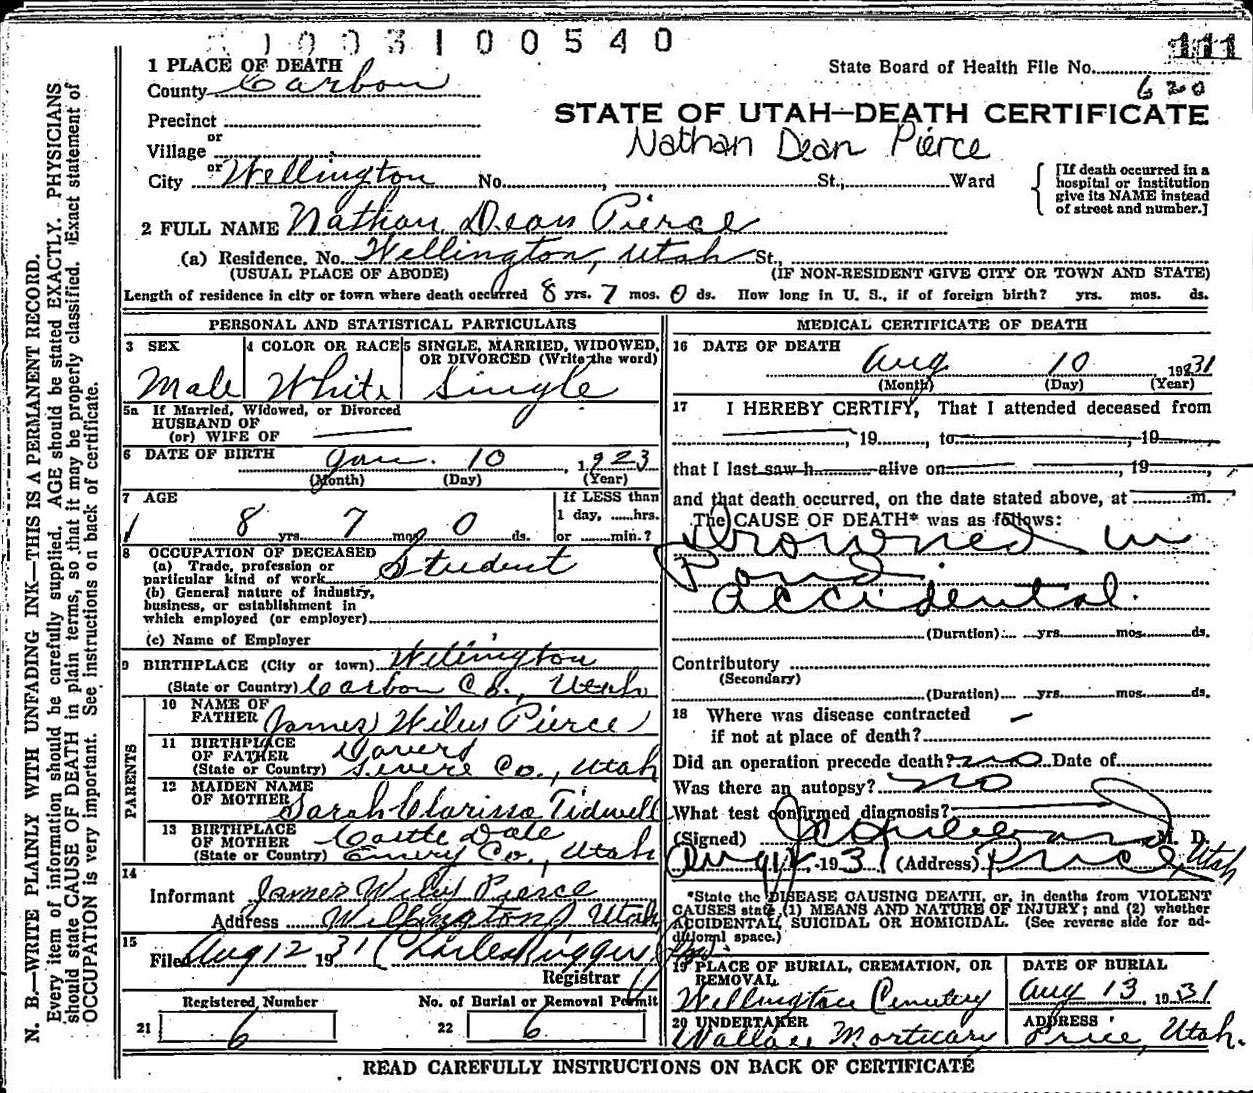 1003100540
111
1 PLACE OF DEATH
State Board of Health File No. 620
County Carbon
STATE OF UTAH—DEATH CERTIFICATE
Precinct
or
Nathan Dean Pierce
Village
or
City Wellington No. , St., Ward
[If death occurred in a hospital or institution give its NAME instead of street and number.]
2 FULL NAME Nathan Dean Pierce
(a) Residence. No. Wellington, Utah St.,
(USUAL PLACE OF ABODE) (IF NON-RESIDENT GIVE CITY OR TOWN AND STATE)
Length of residence in city or town where death occurred 8 yrs. 7 mos. 0 ds. How long in U. S., if of foreign birth? yrs. mos. ds.
PERSONAL AND STATISTICAL PARTICULARS
3 SEX
Male
4 COLOR OR RACE
White
5 SINGLE, MARRIED, WIDOWED, OR DIVORCED (Write the word)
Single
5a If Married, Widowed, or Divorced
HUSBAND OF
(or) WIFE OF
6 DATE OF BIRTH Jan. 10, 1923
(Month) (Day) (Year)
7 AGE
8 yrs. 7 mos. 0 ds.
If LESS than
1 day, ......hrs.
or ......min.?
8 OCCUPATION OF DECEASED
(a) Trade, profession or
particular kind of work Student
(b) General nature of industry,
business, or establishment in
which employed (or employer)
(c) Name of Employer
9 BIRTHPLACE (City or town) Wellington
(State or Country) Carbon Co., Utah
PARENTS
10 NAME OF
FATHER James Wiley Pierce
11 BIRTHPLACE
OF FATHER
(State or Country) Severe Co., Utah
12 MAIDEN NAME
OF MOTHER Sarah Clarissa Tidwell
13 BIRTHPLACE
OF MOTHER Castle Dale
(State or Country) Emery Co., Utah
14
Informant James Wiley Pierce
Address Wellington, Utah
15
Filed Aug 12 1931 Charles Rigger
Registrar
Registered Number
21 6
No. of Burial or Removal Permit
22 6
MEDICAL CERTIFICATE OF DEATH
16 DATE OF DEATH
Aug 10 1931
(Month) (Day) (Year)
17 I HEREBY CERTIFY, That I attended deceased from
, 19 , to , 19 ,
that I last saw h alive on , 19 ,
and that death occurred, on the date stated above, at m.
The CAUSE OF DEATH* was as follows:
Drowned in
Pond
accidental.
(Duration) yrs. mos. ds.
Contributory
(Secondary)
(Duration) yrs. mos. ds.
18 Where was disease contracted
if not at place of death?
Did an operation precede death? no Date of
Was there an autopsy? no
What test confirmed diagnosis?
(Signed) M. D.
Aug 1931 (Address) Price, Utah
*State the DISEASE CAUSING DEATH, or, in deaths from VIOLENT
CAUSES state (1) MEANS AND NATURE OF INJURY; and (2) whether
ACCIDENTAL, SUICIDAL OR HOMICIDAL. (See reverse side for ad-
ditional space.)
19 PLACE OF BURIAL, CREMATION, OR
REMOVAL
Wellington Cemetery
DATE OF BURIAL
Aug 13 1931
20 UNDERTAKER
Wallace Mortuary
ADDRESS
Price, Utah.
READ CAREFULLY INSTRUCTIONS ON BACK OF CERTIFICATE
N. B.—WRITE PLAINLY WITH UNFADING INK—THIS IS A PERMANENT RECORD.
Every item of information should be carefully supplied. AGE should be stated EXACTLY. PHYSICIANS
should state CAUSE OF DEATH in plain terms, so that it may be properly classified. Exact statement of
OCCUPATION is very important. See instructions on back of certificate.